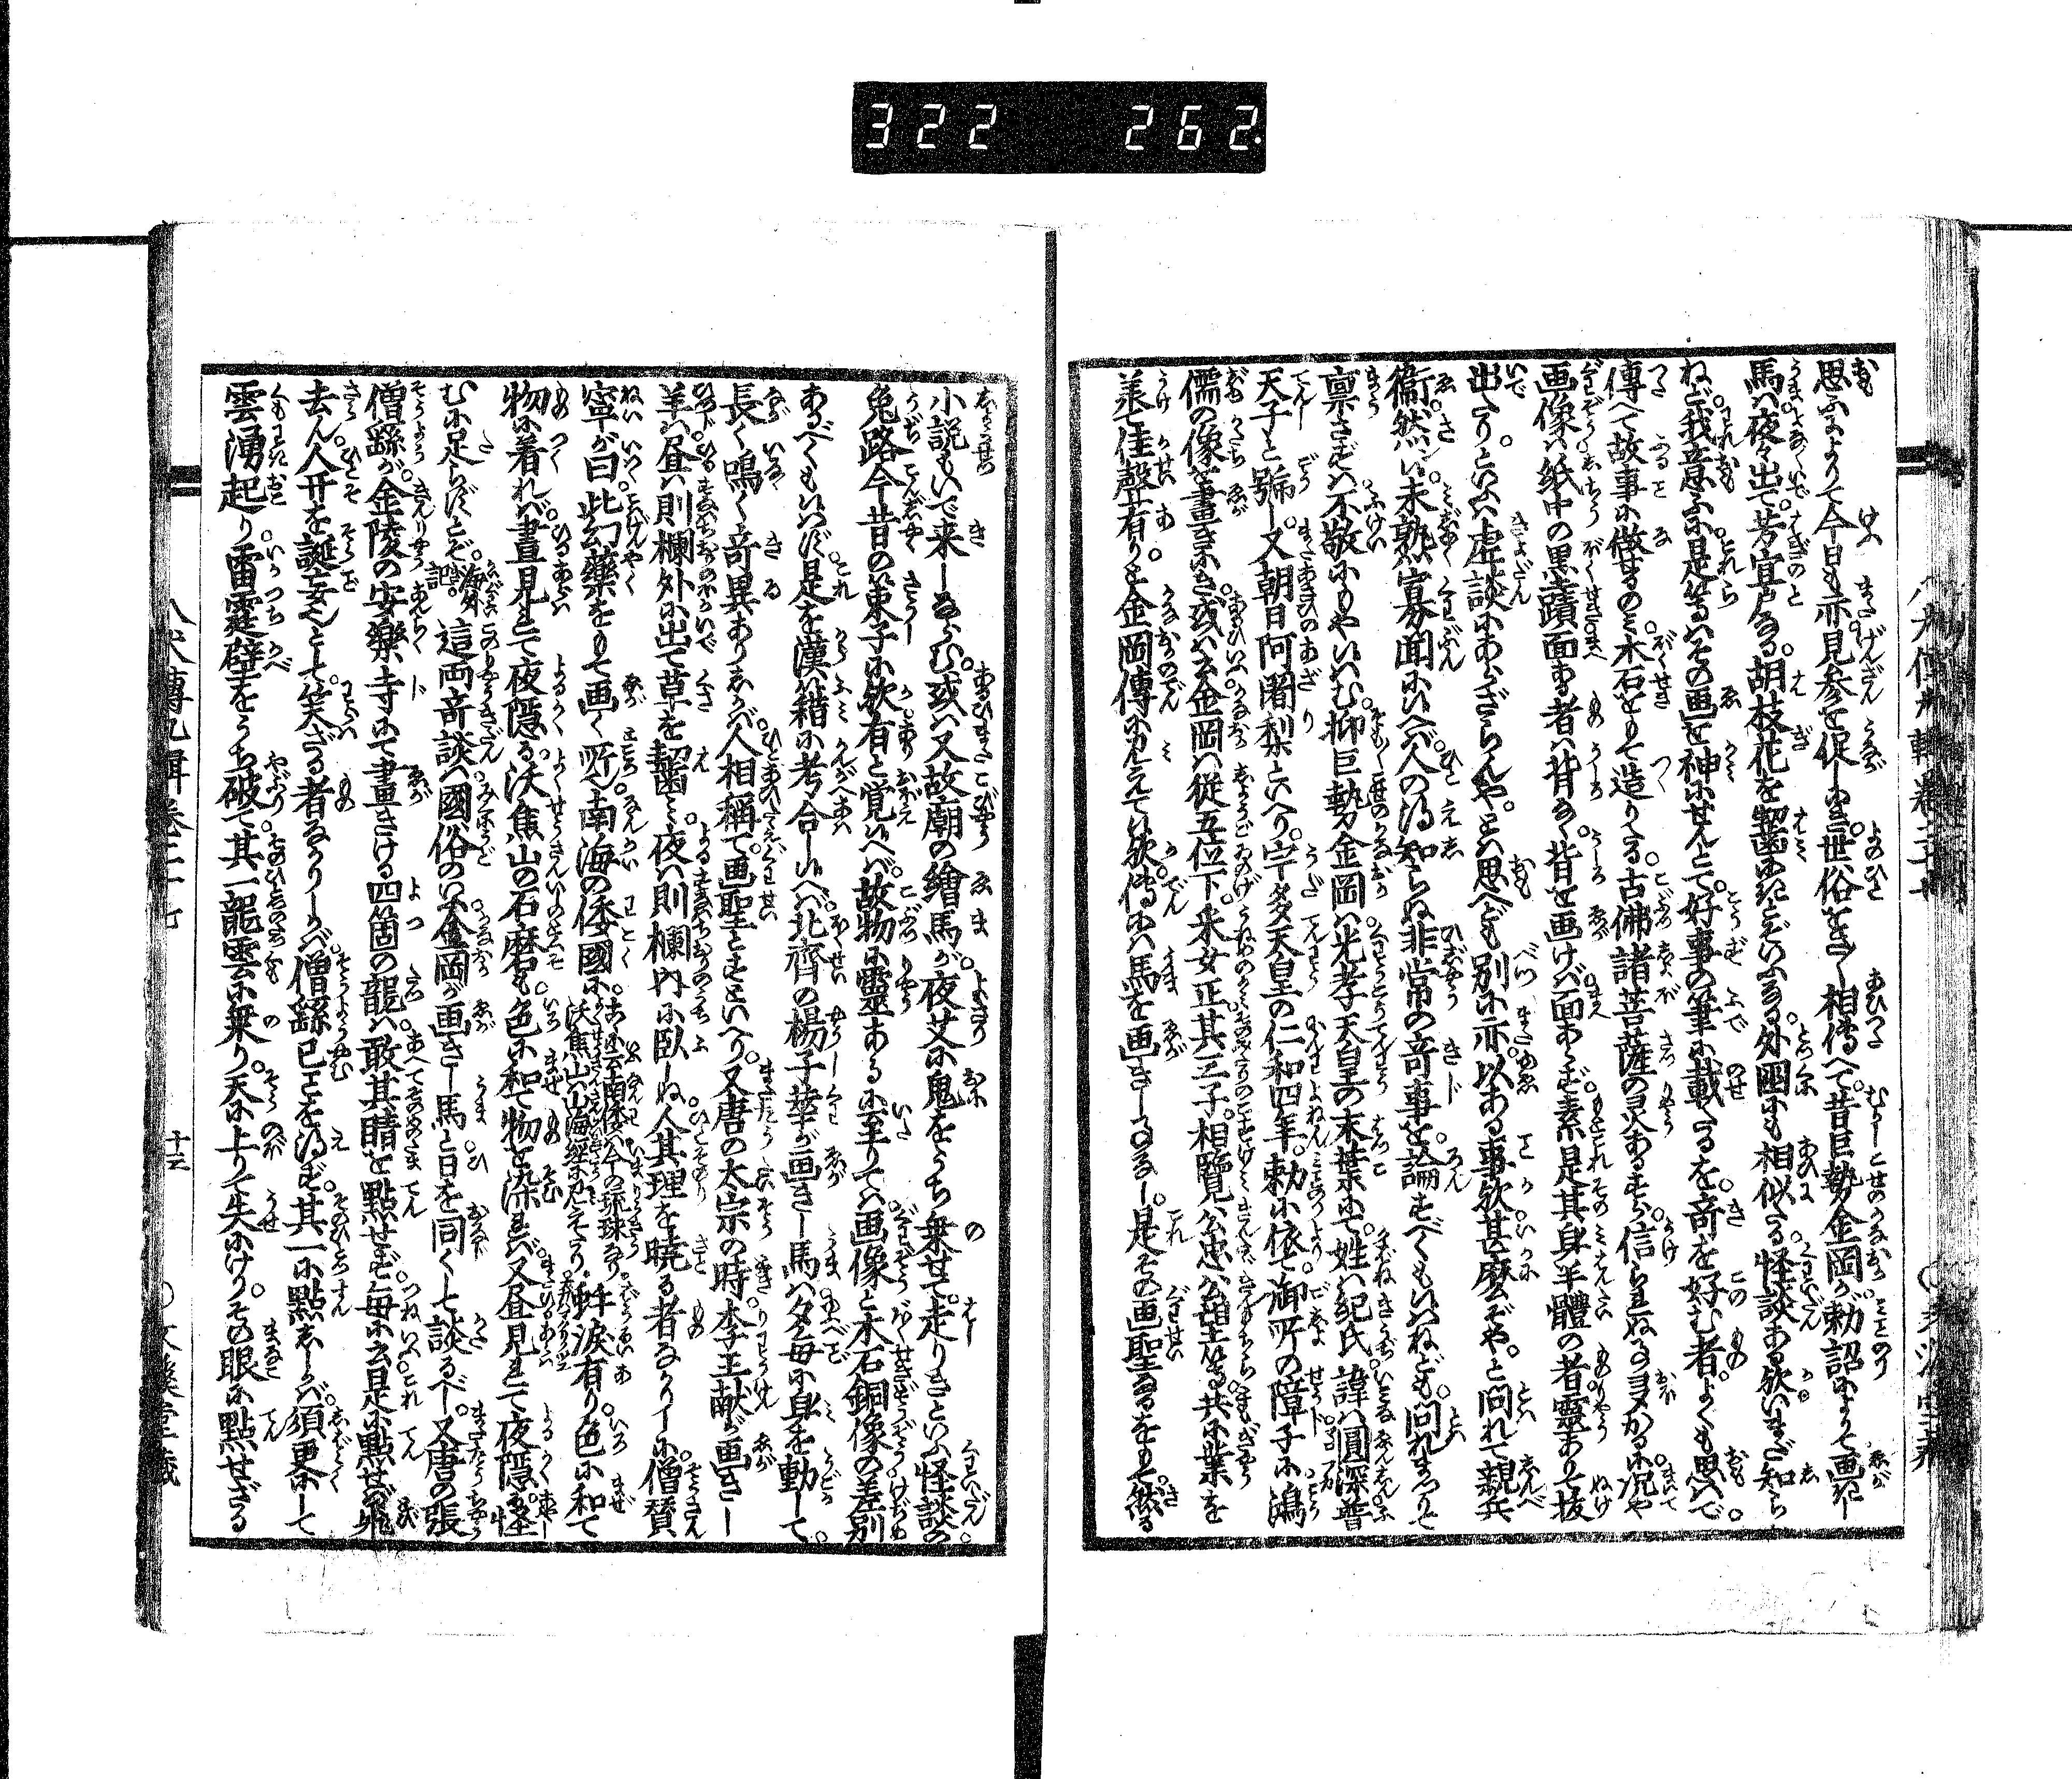 322 262
思ふによりて今日も亦見参を促しにき。世俗をさ〳〵相傳へて。昔巨勢金岡が。勅詔によりて画にし
馬は。夜々出て。芳宜戸なる。胡枝花を齧にきとぞいふなる。外國にも相似たる。怪談ある歟いまだ知ら
ねど。我意ふに是等はその画を神にせんとて。好事の筆に載たるを。奇を好む者。よくも思はで。
傳へて故事に做せるのみ。木石をもて造りたる。古佛諸菩薩の灵あるすら。信られねるヿ多かるに。况や
画像は。紙中の黒蹟。面ある者は背なく。背を画けば面あらず。素是其身半體の者。靈ありて抜
出たりといふは。虚談にあらざらんや。とは思へども別に亦。以ある事歟甚麼ぞや。と問れて親兵
衛然ン候。未熟寡聞に候へば。人の得知らぬ非常の奇事を。論ずべくも候はねども。問れまつりて
禀さずは。不敬にもや候はむ。抑巨勢金岡は。光孝天皇の末葉にて。姓は紀氏。諱は圓深。普
天子と號し。又朝日阿闍梨といへり。宇多天皇の仁和四年。勅に依て。御所の障子に。鴻
儒の像を畫きにき。或は云金岡は従五位下。采女正。其三子。相覽。公忠。公望等。共に業を
羨て佳聲有り。と金岡傳に見えて候歟。傳には馬を画きしヿなし。是その画聖なるをもて。然る
小説もいで来しならむ。或は又故廟の繪馬が。夜艾に鬼をうち乗せて。走りきといふ怪談の。
兔路今昔の策子に歟。有と覚候へば。故物に靈あるに至りては。画像と木石銅像の差別
あるべくも候はず。是を漢籍に考合し候へば。北齊の楊子華が画きし馬は。夕毎に身を動して。
長く鳴く奇異ありしかば。人相稱て。画聖とすといへり。又唐の太宗の時。李王献ぜし。画きし
羊は。昼は則欄外に出て草を齧み。夜は則欄内に臥しぬ。人其理を暁る者なかりしに。僧賛
寧が曰。此幻藥をもて画く所。南海の倭國に。あるに云南倭は今の琉球なり。沃焦山は山海經に見えたり。蚌淚有り。色に和て
物に着れば。晝見れて夜隠る。沃焦山の石磨も。色に和て物を染れば。又昼見れて夜隠る。怪
むに足らずとぞ。海外記。這両奇談は。國俗のいふ金岡が画きし馬と。日を同くして談るべし。又唐の張
僧繇が。金陵の安樂寺にて畫きける。四箇の龍は敢其睛を點せず。毎に云。是に點せば飛
去ん。人丌を誕妄として。笑ざる者なかりしかば。僧繇已ことを得ず。其一に點ししかば。須臾にして
雲湧起り。雷霆壁をうち破て。其一龍雲に乗り。天に上りて失にけり。その眼に點せざる
八犬傳九輯卷二十七
十三